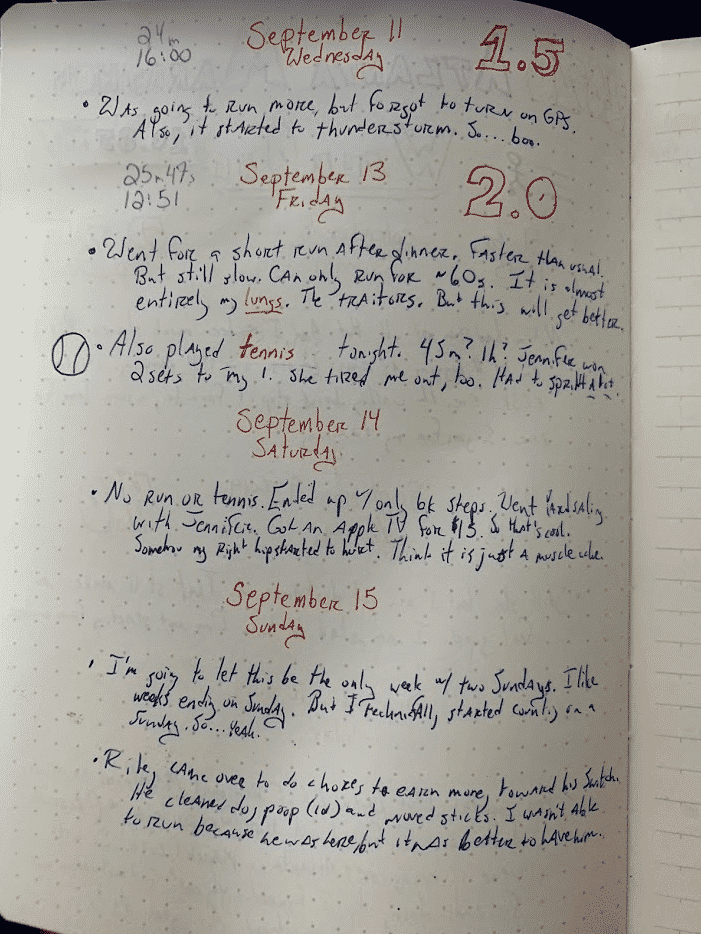 24m
16:00
September 11
Wednesday
1.5
• Was going to run more, but forgot to turn on GPS.
Also, it started to thunderstorm. So... boo.
25m47s
12:51
September 13
Friday
2.0
• Went for a short run after dinner. Faster than usual.
But still slow. Can only run for ~60s. It is almost
entirely my lungs. The traitors. But this will get better.
• Also played tennis tonight. 45m? 1h? Jennifer won
2 sets to my 1. She tired me out, too. Had to sprint a lot.
September 14
Saturday
• No run or tennis. Ended up w/ only 6k steps. Went yardsaling
with Jennifer. Got an Apple TV for $15. So that's cool.
Somehow my right hip started to hurt. Think it is just a muscle ache.
September 15
Sunday
• I'm going to let this be the only week w/ two Sundays. I like
weeks ending on Sunday. But I technically started counting on a
Sunday. So... yeah.
• Riley came over to do chores to earn more toward his Switch.
He cleaned dog poop and moved sticks. I wasn't able
to run because he was here, but it was better to have him.